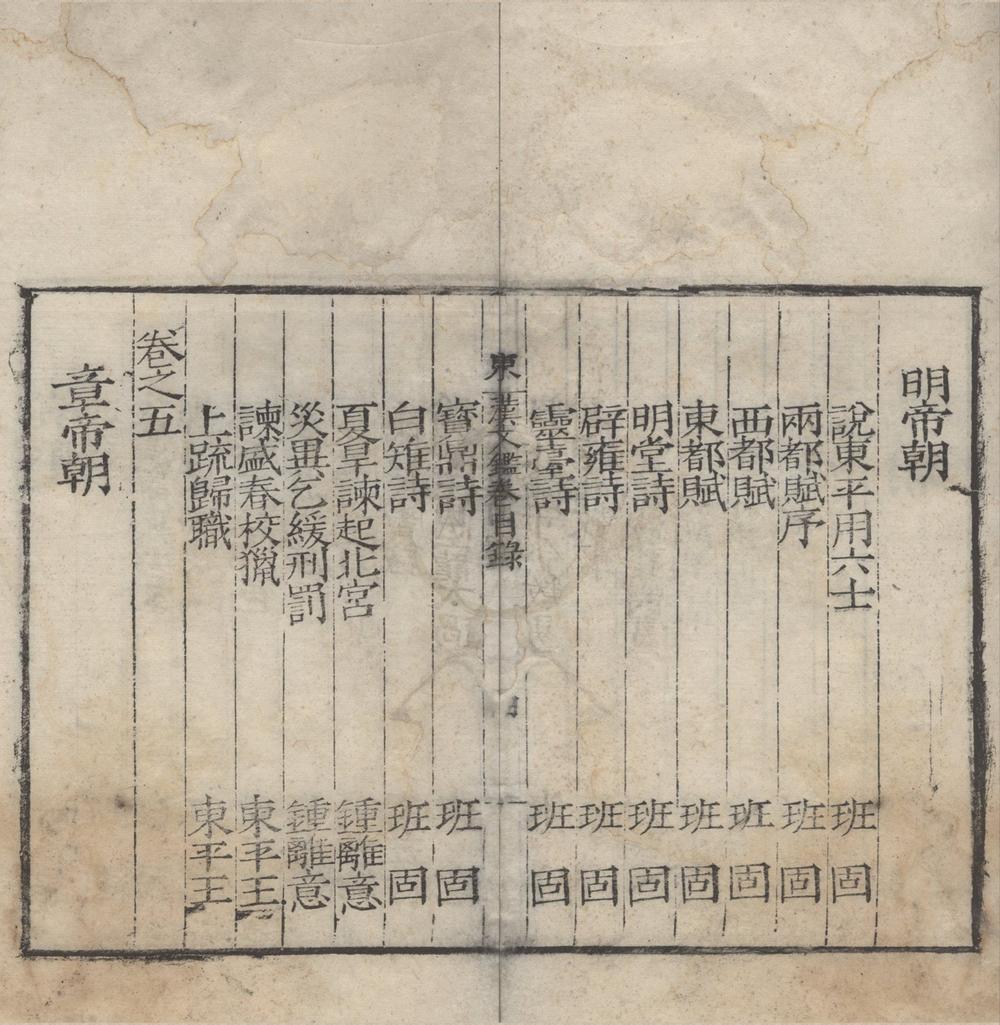 明帝朝
說東平用六士 班固
兩都賦序 班固
西都賦 班固
東都賦 班固
明堂詩 班固
辟雍詩 班固
靈臺詩 班固
東漢文鑑卷目錄 四
寶鼎詩 班固
白雉詩 班固
夏旱諫起北宮 鍾離意
災異乞緩刑罰 鍾離意
諫盛春校獵 東平王
上疏歸職 東平王
卷之五
章帝朝